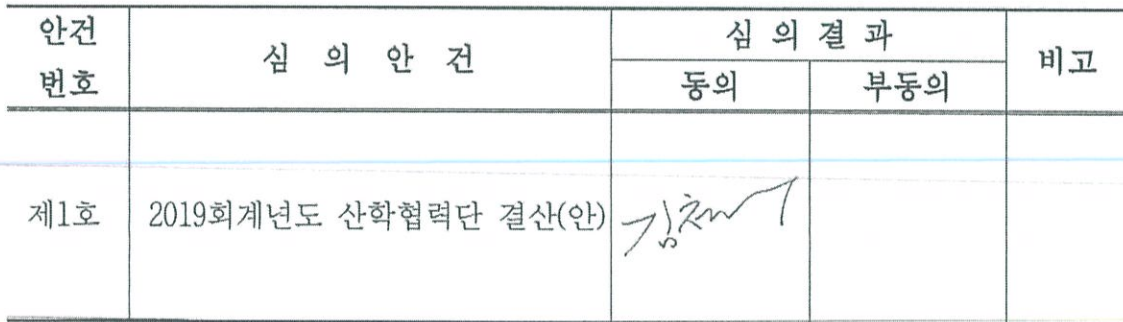 안건 번호
심 의 안 건
심 의 결 과
비고
동의
부동의
제1호
2019회계년도 산학협력단 결산(안)